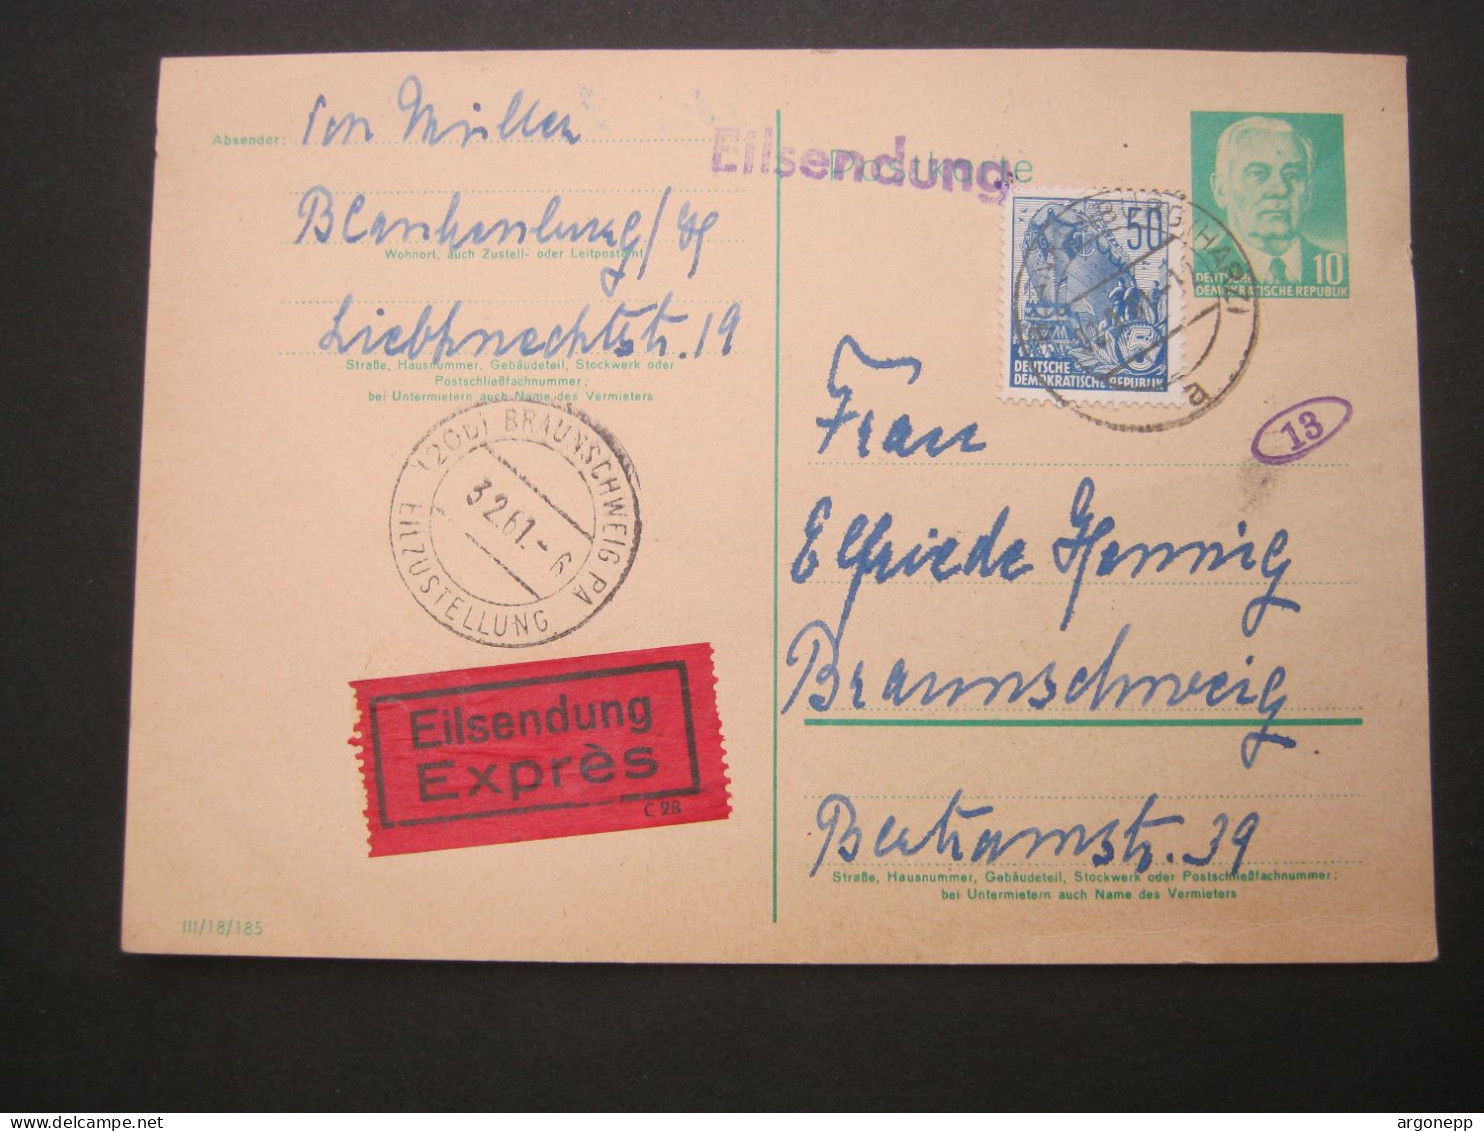 Absender: von Müller
Blankenburg/Hz
Wohnort, auch Zustell- oder Leitpostamt
Liebknechtstr. 19
Straße, Hausnummer, Gebäudeteil, Stockwerk oder
Postschließfachnummer;
bei Untermietern auch Name des Vermieters
(20b) BRAUNSCHWEIG PA
3.2.61.-6
EILZUSTELLUNG
Eilsendung
Exprès
C 2B
III/18/185
Eilsendung
Postkarte
50
5
DEUTSCHE
DEMOKRATISCHE REPUBLIK
BURG (HARZ)
a
10
DEUTSCHE
DEMOKRATISCHE REPUBLIK
13
Frau
Elfriede Hennig
Braunschweig
Bertramstr. 39
Straße, Hausnummer, Gebäudeteil, Stockwerk oder Postschließfachnummer;
bei Untermietern auch Name des Vermieters
argonepp